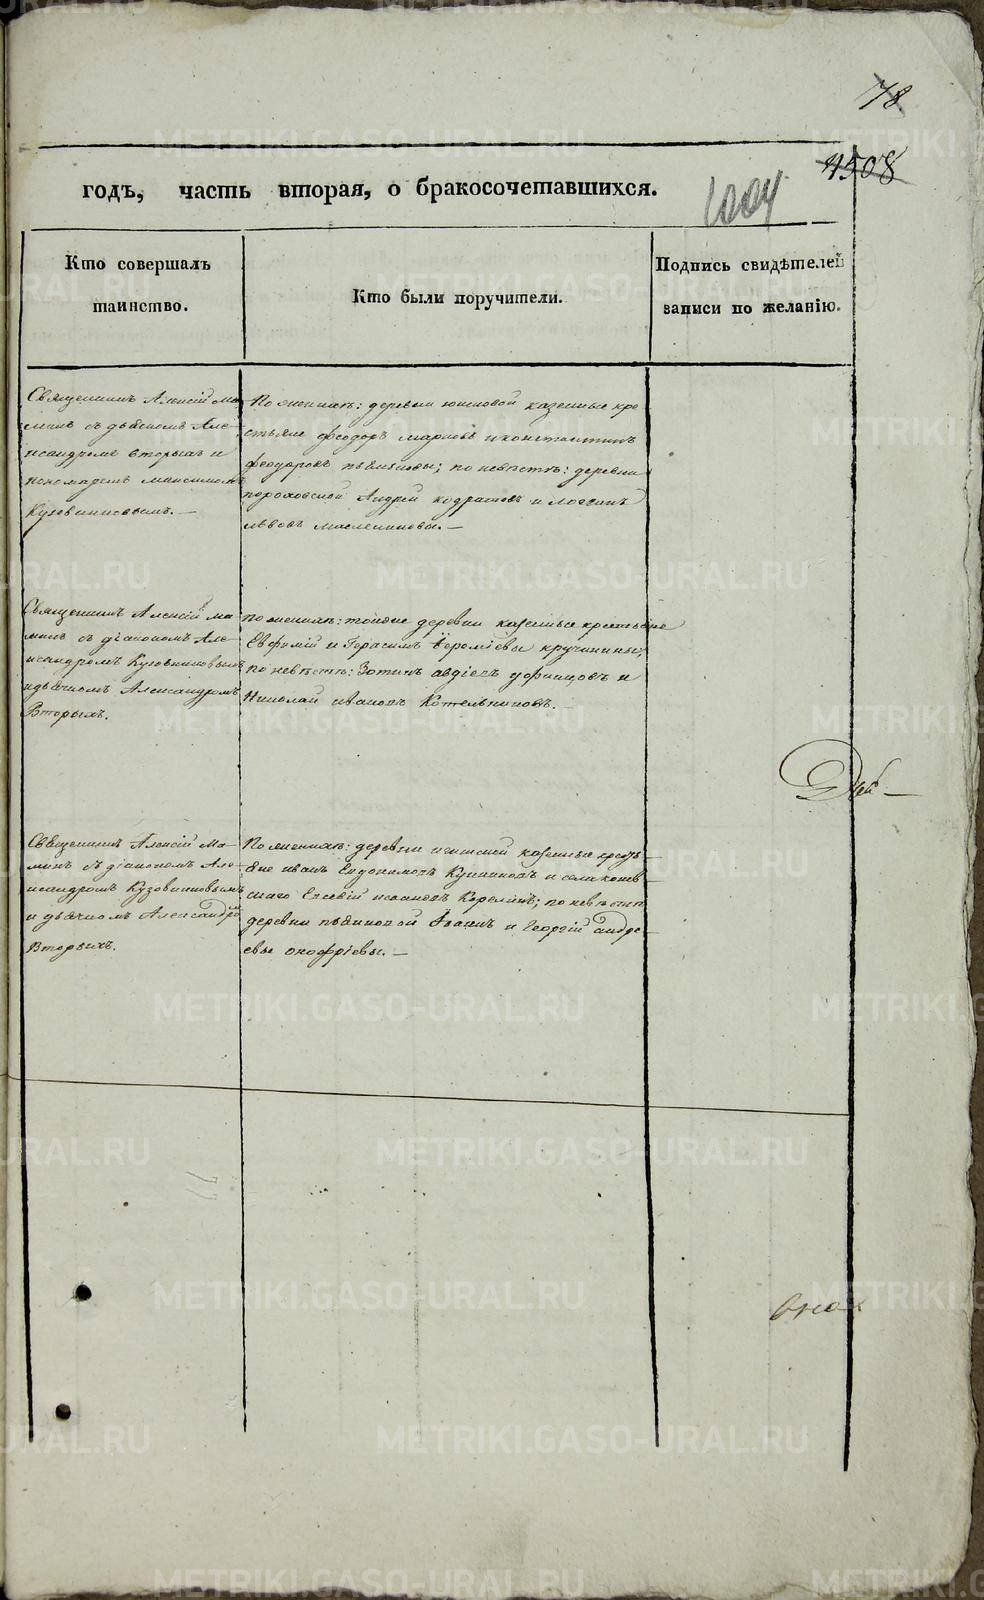 78
4508
годъ, часть вторая, о бракосочетавшихся.
Кто совершалъ
таинство.
Кто были поручители.
Подпись свидѣтелей
записи по желанію.
Священникъ Алексій Ма-
минъ съ дьячкомъ Але-
ксандромъ Вторыхъ и
пономаремъ Максимомъ
Кузовниковымъ. —
По женихѣ: деревни казенные кре-
стьяне Феодоръ Марковъ и Константинъ
Феодоровъ по невѣстѣ: деревни
пороховской Андрей кодратовъ и Логгинъ
львовъ масленниковы. —
Священникъ Алексій Ма-
минъ съ діакономъ Але-
ксандромъ Кузовниковымъ
и дьячкомъ Александромъ
Вторыхъ.
по женихѣ: тойже деревни казенные крестьяне
Евфимій и Герасимъ Іереміевы кручинины,
по невѣстѣ: Зотикъ авдіевъ уфинцовъ и
Николай ивановъ Котельниковъ. —
Священникъ Алексій Ма-
минъ съ діакономъ Але-
ксандромъ Кузовниковымъ
и дьячкомъ Александромъ
Вторыхъ.
По женихѣ: деревни казенные кресть-
яне иванъ Евдокимовъ и села
Евсевій ивановъ Корелинъ; по невѣстѣ
деревни Іоаннъ и Георгій андре-
евы онофріевы. —
METRIKI.GASO-URAL.RU